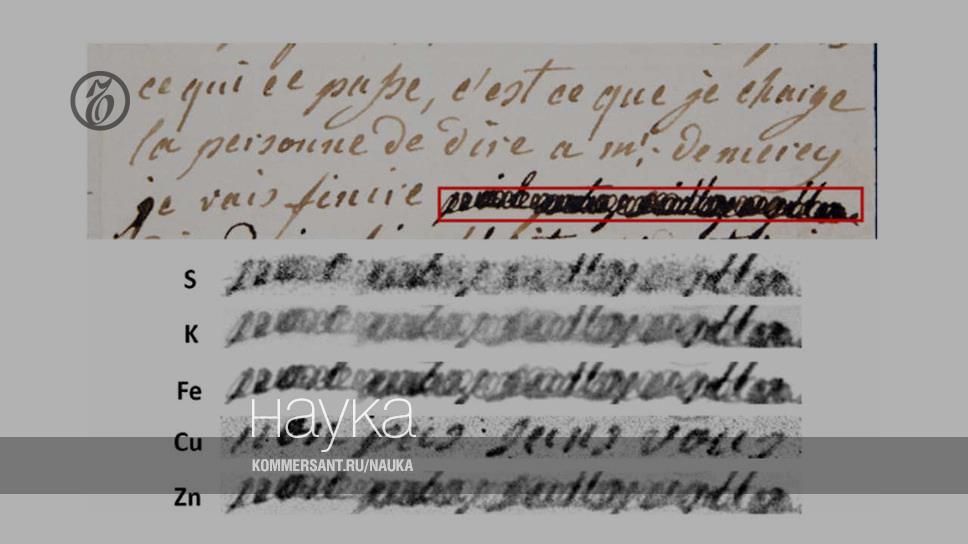 ce qui ce paſse, c'est ce que je charge
la personne de dire a mr. de mercy
je vais finire
S
K
Fe
Cu non pas sans vous
Zn
Ъ
наука
KOMMERSANT.RU/NAUKA